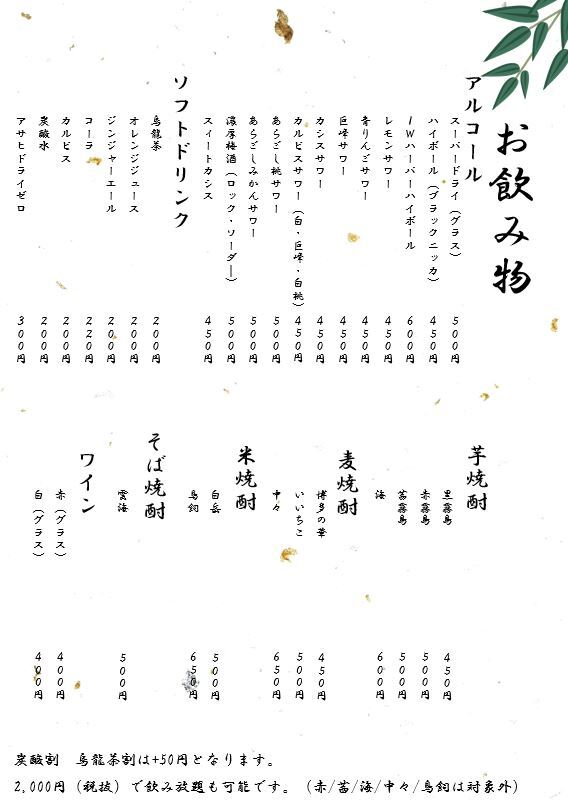 お飲み物
アルコール
スーパードライ（グラス） 500円
ハイボール（ブラックニッカ） 450円
IWハーパーハイボール 600円
レモンサワー 450円
青りんごサワー 450円
巨峰サワー 450円
カシスサワー 450円
カルピスサワー（白・巨峰・白桃） 450円
あらごし桃サワー 500円
あらごしみかんサワー 500円
濃厚梅酒（ロック・ソーダ―） 500円
スィートカシス 450円
ソフトドリンク
烏龍茶 200円
オレンジジュース 200円
ジンジャーエール 200円
コーラ 220円
カルピス 200円
炭酸水 200円
アサヒドライゼロ 300円
芋焼酎
黒霧島 450円
赤霧島 500円
茜霧島 500円
海 600円
麦焼酎
博多の華 450円
いいちこ 500円
中々 650円
米焼酎
白岳 500円
鳥飼 650円
そば焼酎
雲海 500円
ワイン
赤（グラス） 400円
白（グラス） 400円
炭酸割　烏龍茶割は+50円となります。
2,000円（税抜）で飲み放題も可能です。（赤/茜/海/中々/鳥飼は対象外）